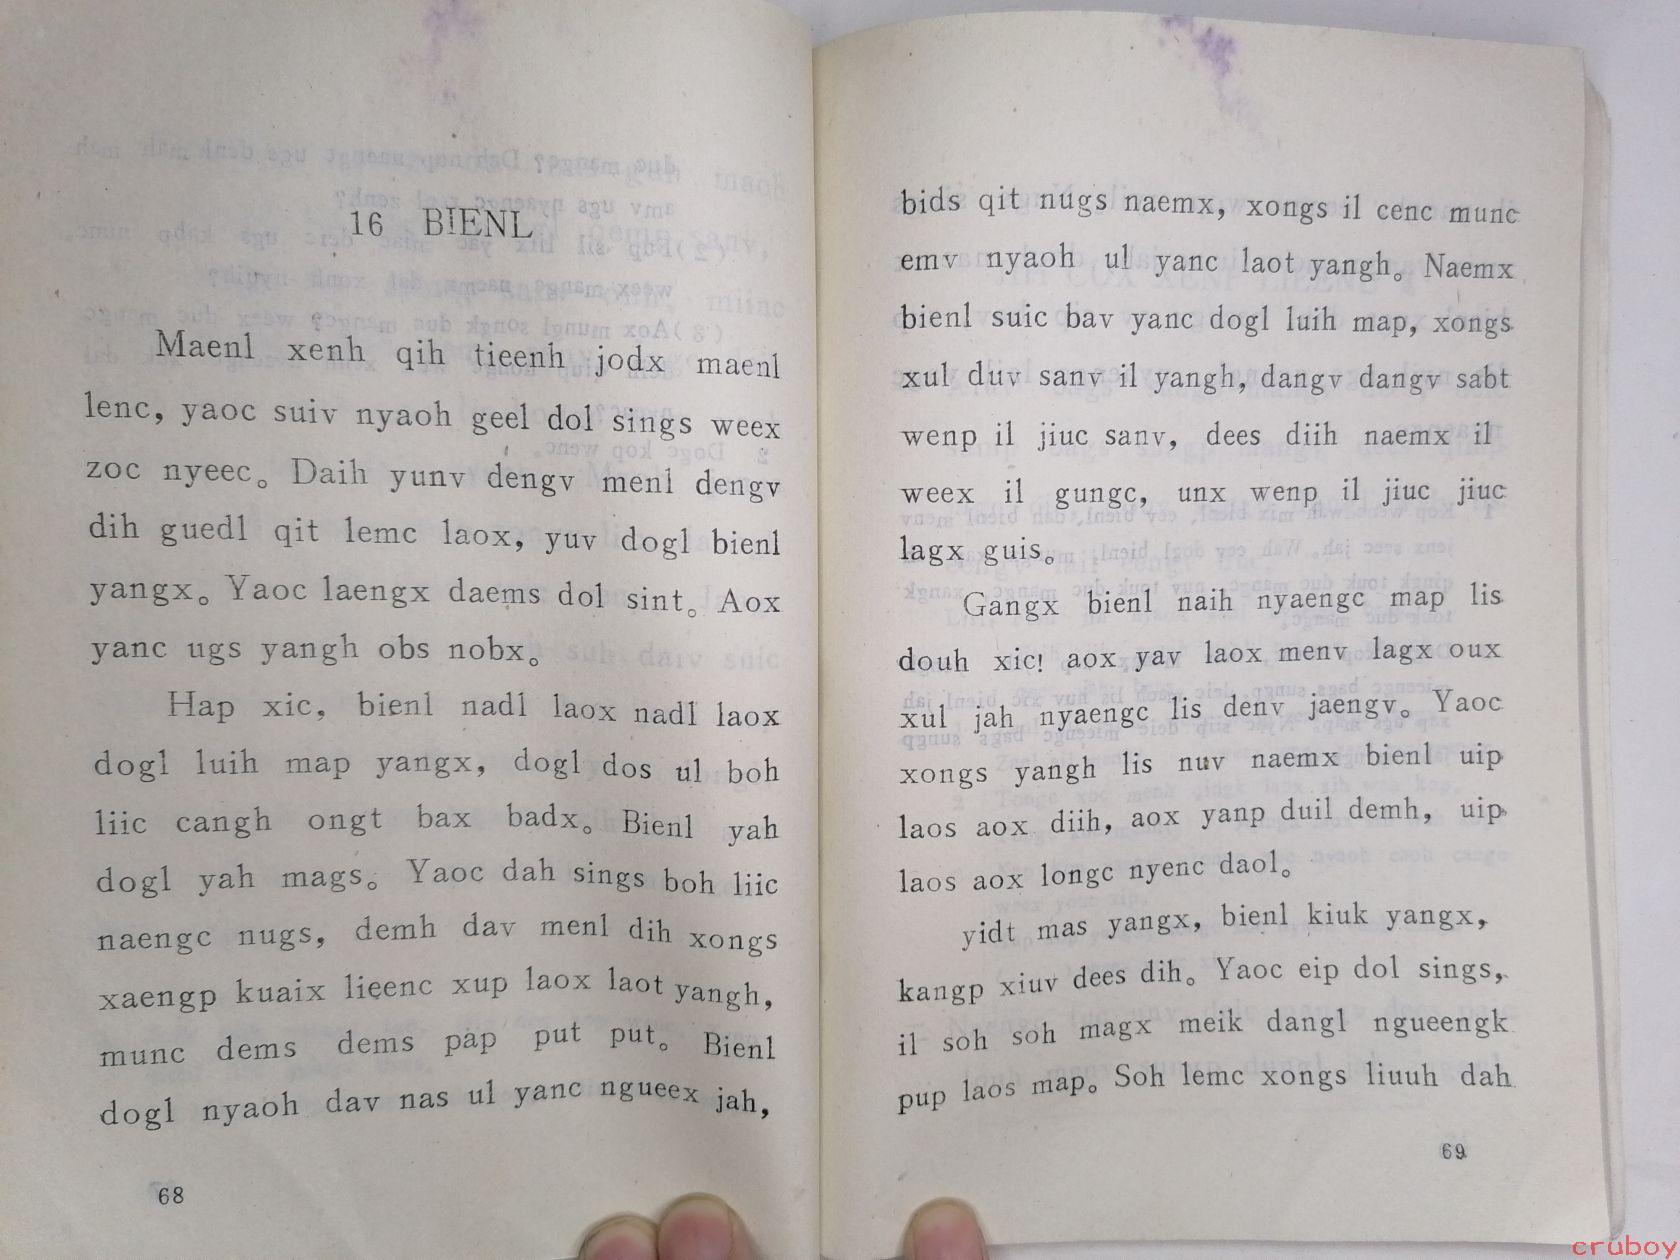 16 BIENL
Maenl xenh qih tieenh jodx maenl
lenc, yaoc suiv nyaoh geel dol sings weex
zoc nyeec。 Daih yunv dengv menl dengv
dih guedl qit lemc laox, yuv dogl bienl
yangx。 Yaoc laengx daems dol sint。 Aox
yanc ugs yangh obs nobx。
Hap xic, bienl nadl laox nadl laox
dogl luih map yangx, dogl dos ul boh
liic cangh ongt bax badx。 Bienl yah
dogl yah mags。 Yaoc dah sings boh liic
naengc nugs, demh dav menl dih xongs
xaengp kuaix lieenc xup laox laot yangh,
munc dems dems pap put put。 Bienl
dogl nyaoh dav nas ul yanc ngueex jah,
68
bids qit nugs naemx, xongs il cenc munc
emv nyaoh ul yanc laot yangh。 Naemx
bienl suic bav yanc dogl luih map, xongs
xul duv sanv il yangh, dangv dangv sabt
wenp il jiuc sanv, dees diih naemx il
weex il gungc, unx wenp il jiuc jiuc
lagx guis。
Gangx bienl naih nyaengc map lis
douh xic! aox yav laox menv lagx oux
xul jah nyaengc lis denv jaengv。 Yaoc
xongs yangh lis nuv naemx bienl uip
laos aox diih, aox yanp duil demh, uip
laos aox longc nyenc daol。
yidt mas yangx, bienl kiuk yangx,
kangp xiuv dees dih。 Yaoc eip dol sings,
il soh soh magx meik dangl ngueengk
pup laos map。 Soh lemc xongs liuuh dah
69
cruboy